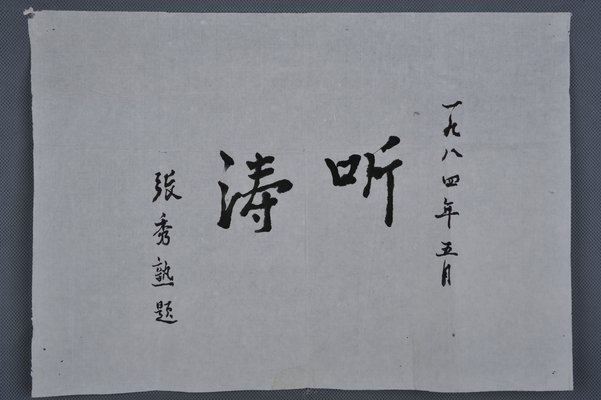 一九八四年五月
听涛
张秀熟题